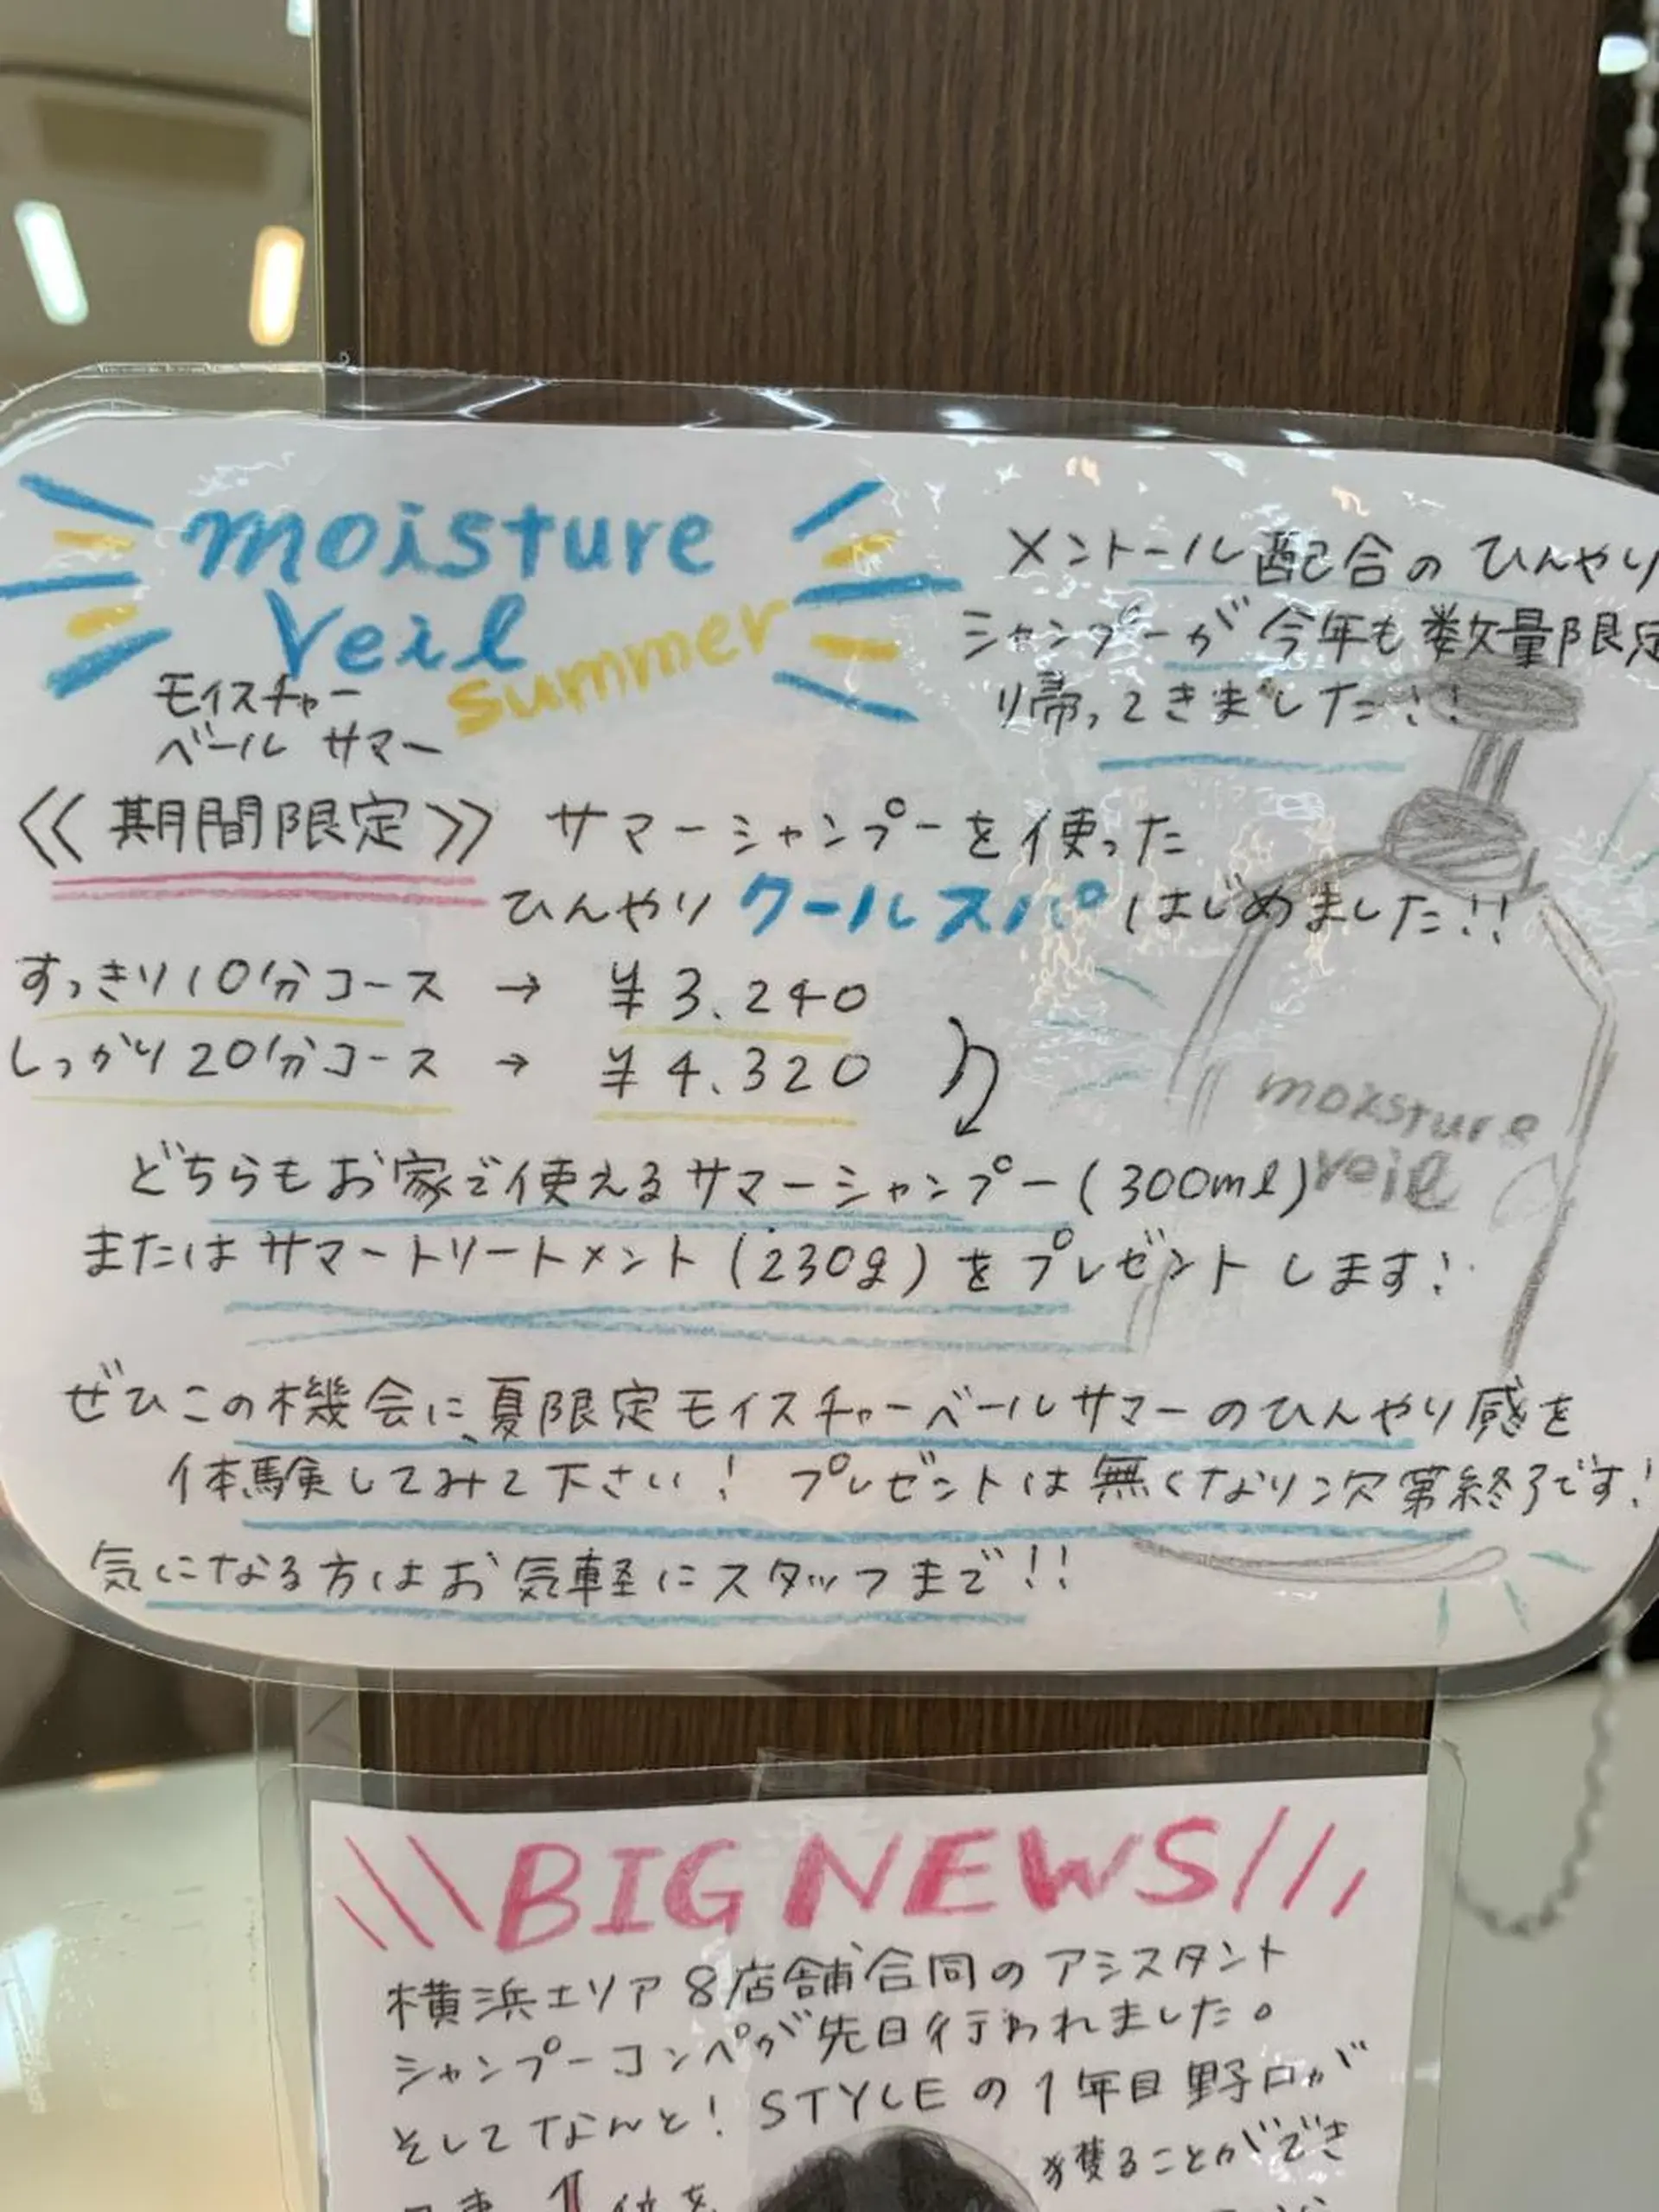 moisture
Veil
summer
モイスチャー
ベール サマー
メントール配合のひんやり
シャンプーが今年も数量限定
り帰ってきました!!
《期間限定》 サマーシャンプーを使った
ひんやり クールスパ はじめました!!
すっきり10分コース → ¥3.240
しっかり20分コース → ¥4.320
どちらもお家で使えるサマーシャンプー(300ml)
またはサマートリートメント(230g)をプレゼントします!
moisture
veil
ぜひこの機会に、夏限定モイスチャーベールサマーのひんやり感を
体験してみて下さい! プレゼントは無くなり次第終了です!
気になる方はお気軽にスタッフまで!!
BIG NEWS
横浜エリア8店舗合同のアシスタント
シャンプーコンペが先日行われました。
そしてなんと! STYLEの1年目野口が
獲ることができ
1位を